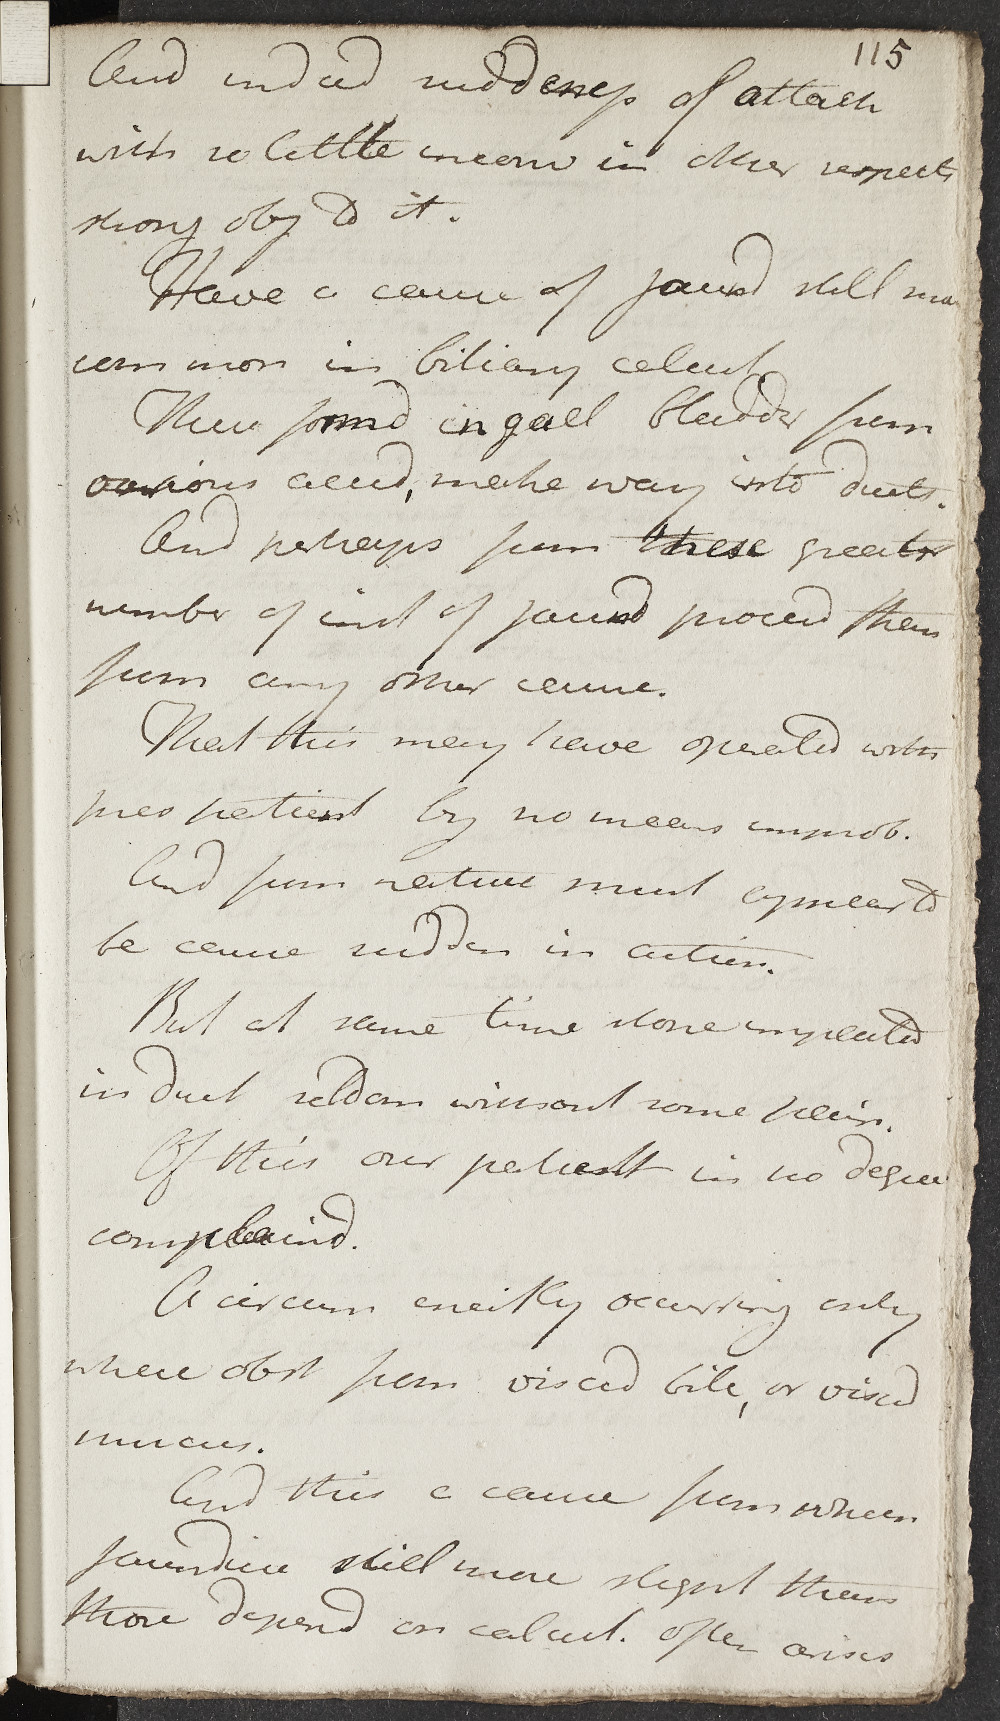 115
And indeed suddenness of attack
with so little uneasi in other respects
strong obj to it.
Have a cause of jaund still mo
common in biliary calcul
These formd in gall bladder from
various accid, make way into ducts.
And perhaps from these greater
number of inst of jaund proceed than
from any other cause.
That this may have operated with
pres patient by no means improb.
And from nature must appear to
be cause sudden in action.
But at same time stone impacted
in duct seldom without some pain.
Of this our patient in no degree
complaind.
A circum chiefly occurring only
where obst from viscid bile, or viscd
mucus.
And this a cause from whch
jaundice still more slight than
those depend on calcul. often arises